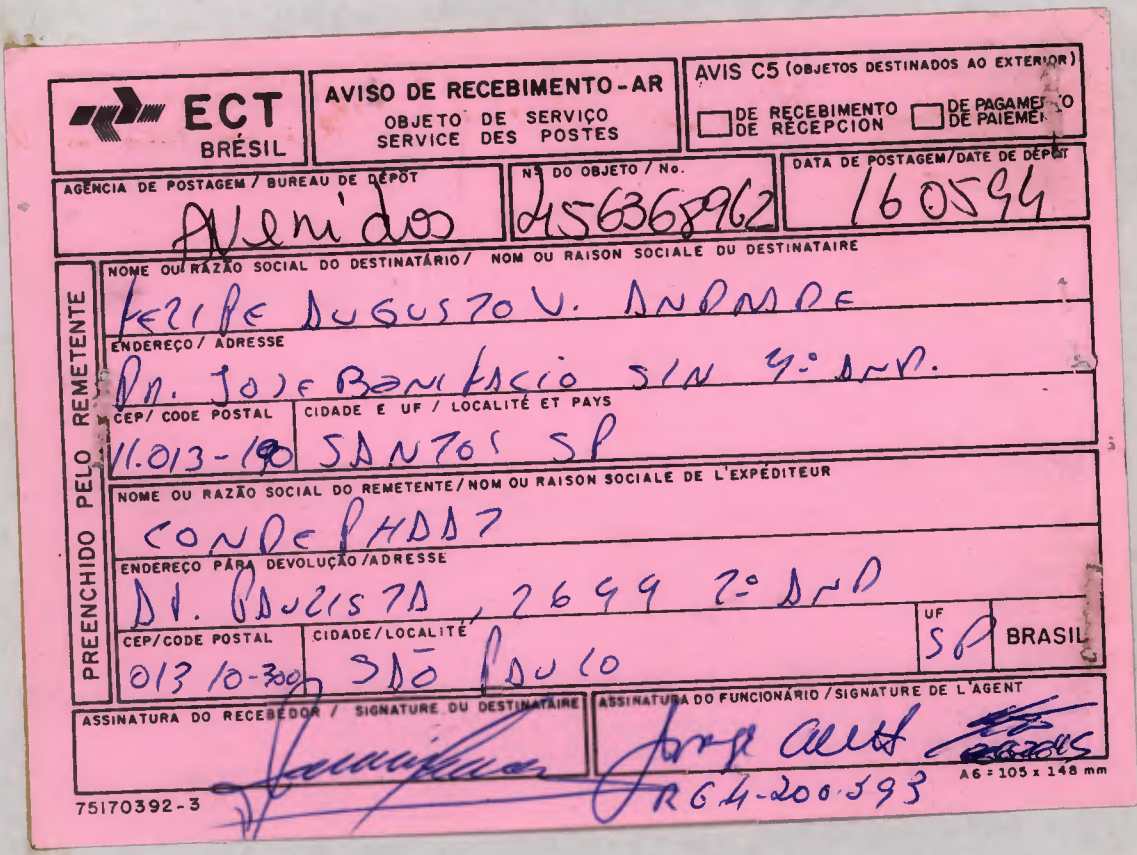 ECT
BRÉSIL
AVISO DE RECEBIMENTO-AR
OBJETO DE SERVIÇO
SERVICE DES POSTES
AVIS C5 (OBJETOS DESTINADOS AO EXTERIOR)
DE RECEBIMENTO
DE RÉCEPCION
DE PAGAMENTO
DE PAIEMEN
AGÊNCIA DE POSTAGEM / BUREAU DE DÉPÔT
Avenidas
Nº DO OBJETO / No.
456368962
DATA DE POSTAGEM/DATE DE DÉPÔT
160594
PREENCHIDO PELO REMETENTE
NOME OU RAZÃO SOCIAL DO DESTINATÁRIO / NOM OU RAISON SOCIALE DU DESTINATAIRE
FELIPE AUGUSTO V. ANDRADE
ENDEREÇO / ADRESSE
PR. JOSE BONIFACIO S/N 4º AND.
CEP/ CODE POSTAL
11.013-190
CIDADE E UF / LOCALITÉ ET PAYS
SANTOS SP
NOME OU RAZÃO SOCIAL DO REMETENTE/NOM OU RAISON SOCIALE DE L'EXPÉDITEUR
CONDEPHAAT
ENDEREÇO PARA DEVOLUÇÃO /ADRESSE
AV. PAULISTA, 2644 2º AND
CEP/CODE POSTAL
01310-300
CIDADE/LOCALITÉ
SÃO PAULO
UF
SP
BRASIL
ASSINATURA DO RECEBEDOR / SIGNATURE DU DESTINATAIRE
ASSINATURA DO FUNCIONÁRIO /SIGNATURE DE L'AGENT
Jorge
RG 4-200.593
75170392-3
A6 = 105 x 148 mm